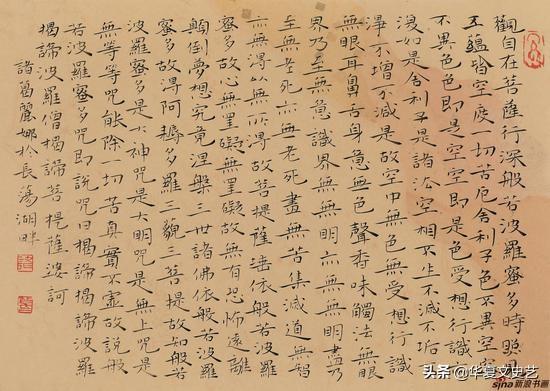 觀自在菩薩行深般若波羅蜜多時照見
五蘊皆空度一切苦厄舍利子色不異空空
不異色色即是空空即是色受想行識
復如是舍利子是諸法空相不生不滅不垢
淨不增不減是故空中無色無受想行識
無眼耳鼻舌身意無色聲香味觸法無眼
界乃至無意識界無無明亦無無明盡乃
至無老死亦無老死盡無苦集滅道無智
亦無得以無所得故菩提薩埵依般若波羅
蜜多故心無罣礙無罣礙故無有恐怖遠離
顛倒夢想究竟涅槃三世諸佛依般若波羅
蜜多故得阿耨多羅三藐三菩提故知般若
波羅蜜多是大神咒是大明咒是無上咒是
無等等咒能除一切苦真實不虛故說般
若波羅蜜多咒即說咒曰揭諦揭諦波羅
揭諦波羅僧揭諦菩提薩婆訶
諸葛麗娜於長蕩湖畔
头条 @华夏文史艺
sina 新浪书画